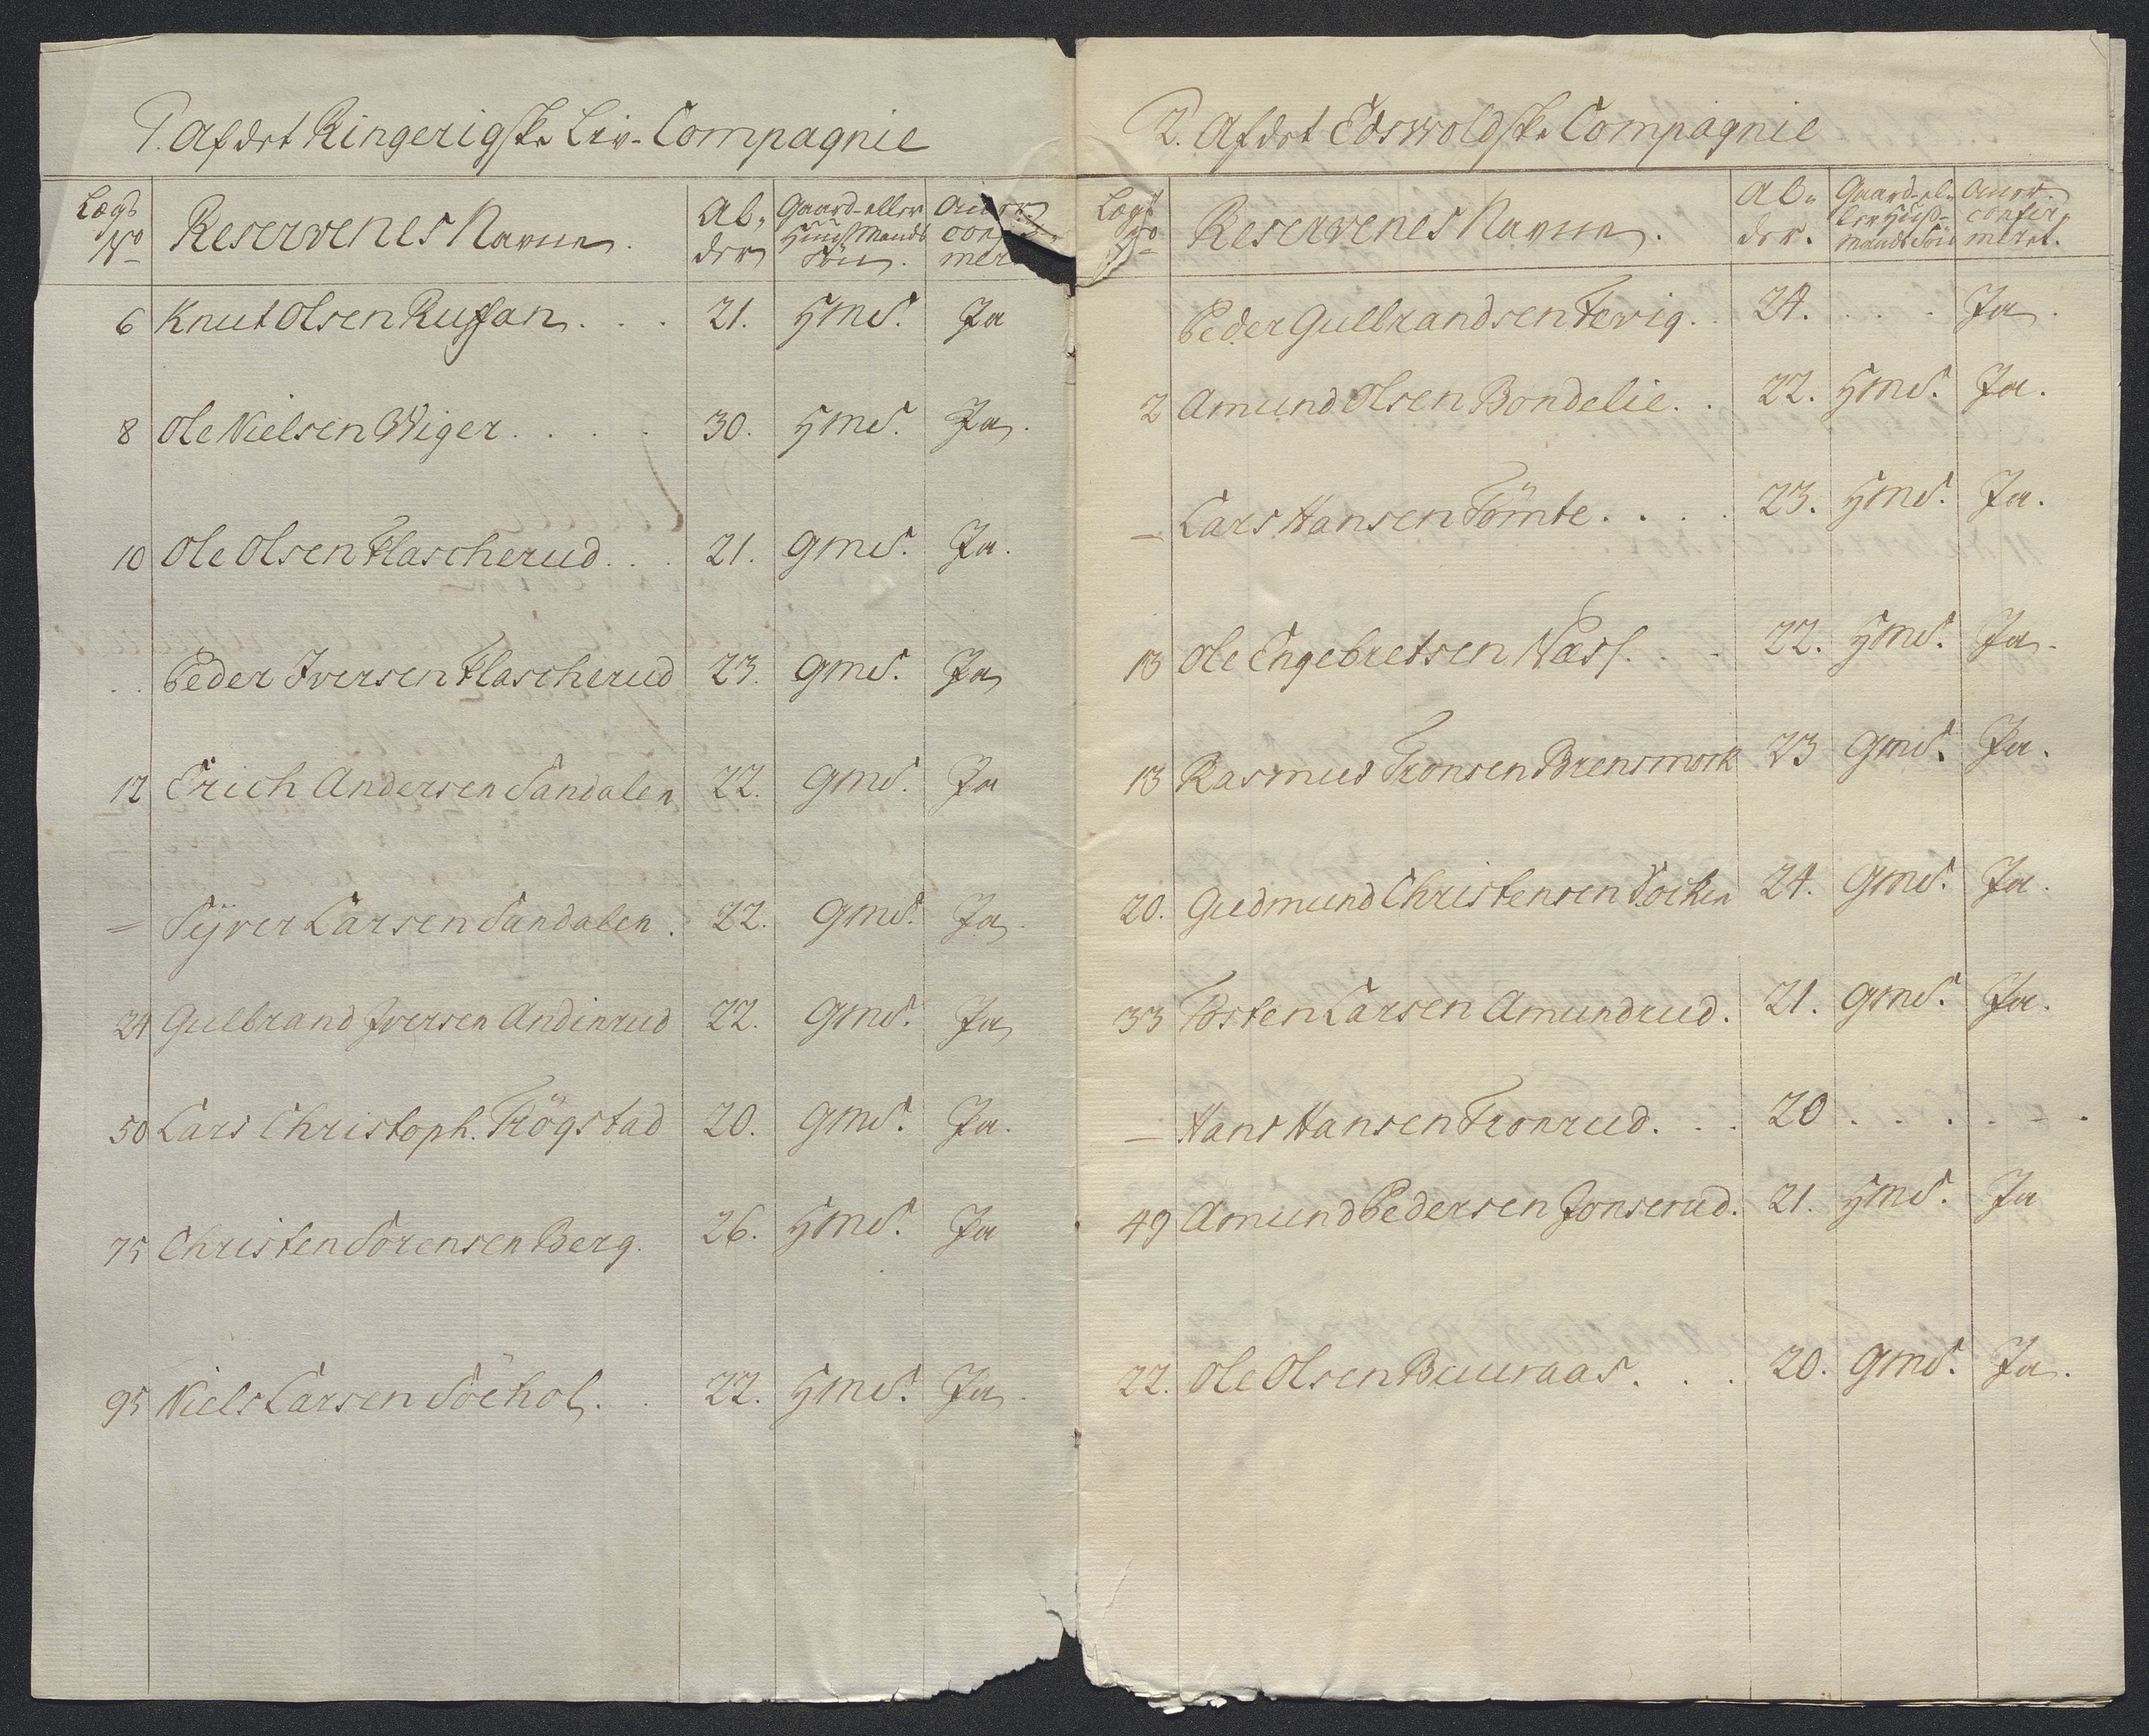 1. Af det Ringerigske Liv-Compagnie
Lægs No Reservenes Navne. Al-der Gaard- eller Huusmands Sön.
6 Knut Olsen Russan. . . 21. Hmd S. Ja
8 Ole Nielsen Wiger . . . . 30. HmdS. Ja.
10 Ole Olsen Flascherud. . . 21. GmdS. Ja.
. . Peder Iversen Flascherud 23. GmdS. Ja
12 Erich Andersen Sandalen 22. GmdS. Ja
– Syver Larsen Sandalen. 22. GmdS. Ja.
24 Gulbrand Iversen Andinrud 22. GmdS. Ja
50 Lars Christoph. Trögstad 20. GmdS. Ja.
75 Christen Sörensen Berg. 26. HmdS. Ja
95 Niels Larsen Söehol. . 22. HmdS. Ja.
2. Af det Edswoldske Compagnie
Lægs No Reservenes Navne. Al-der. Gaard- el-ler Huus-mands Sön confir-meret.
Peder Gulbrandsen Tevig. . 24. . . . Ja.
2 Amund Olsen Bondelie. . 22. HmdS. Ja.
– Lars Hansen Tömte. . . . 23. HmdS. Ja.
13 Ole Engebretsen Næss. . . 22. HmdS. Ja.
13 Rasmus Tronsen Brensmork 23 GmdS. Ja.
20. Gudmund Christensen 24. GmdS. Ja.
33 Tosten Larsen Amundrud. 21. GmdS. Ja.
– Hans Hansen Tronrud. . . 20 . . . . . .
49 Amund Pedersen Jonserud. 21. HmdS. Ja
22. Ole Olsen Buuraas. . . 20. GmdS. Ja.